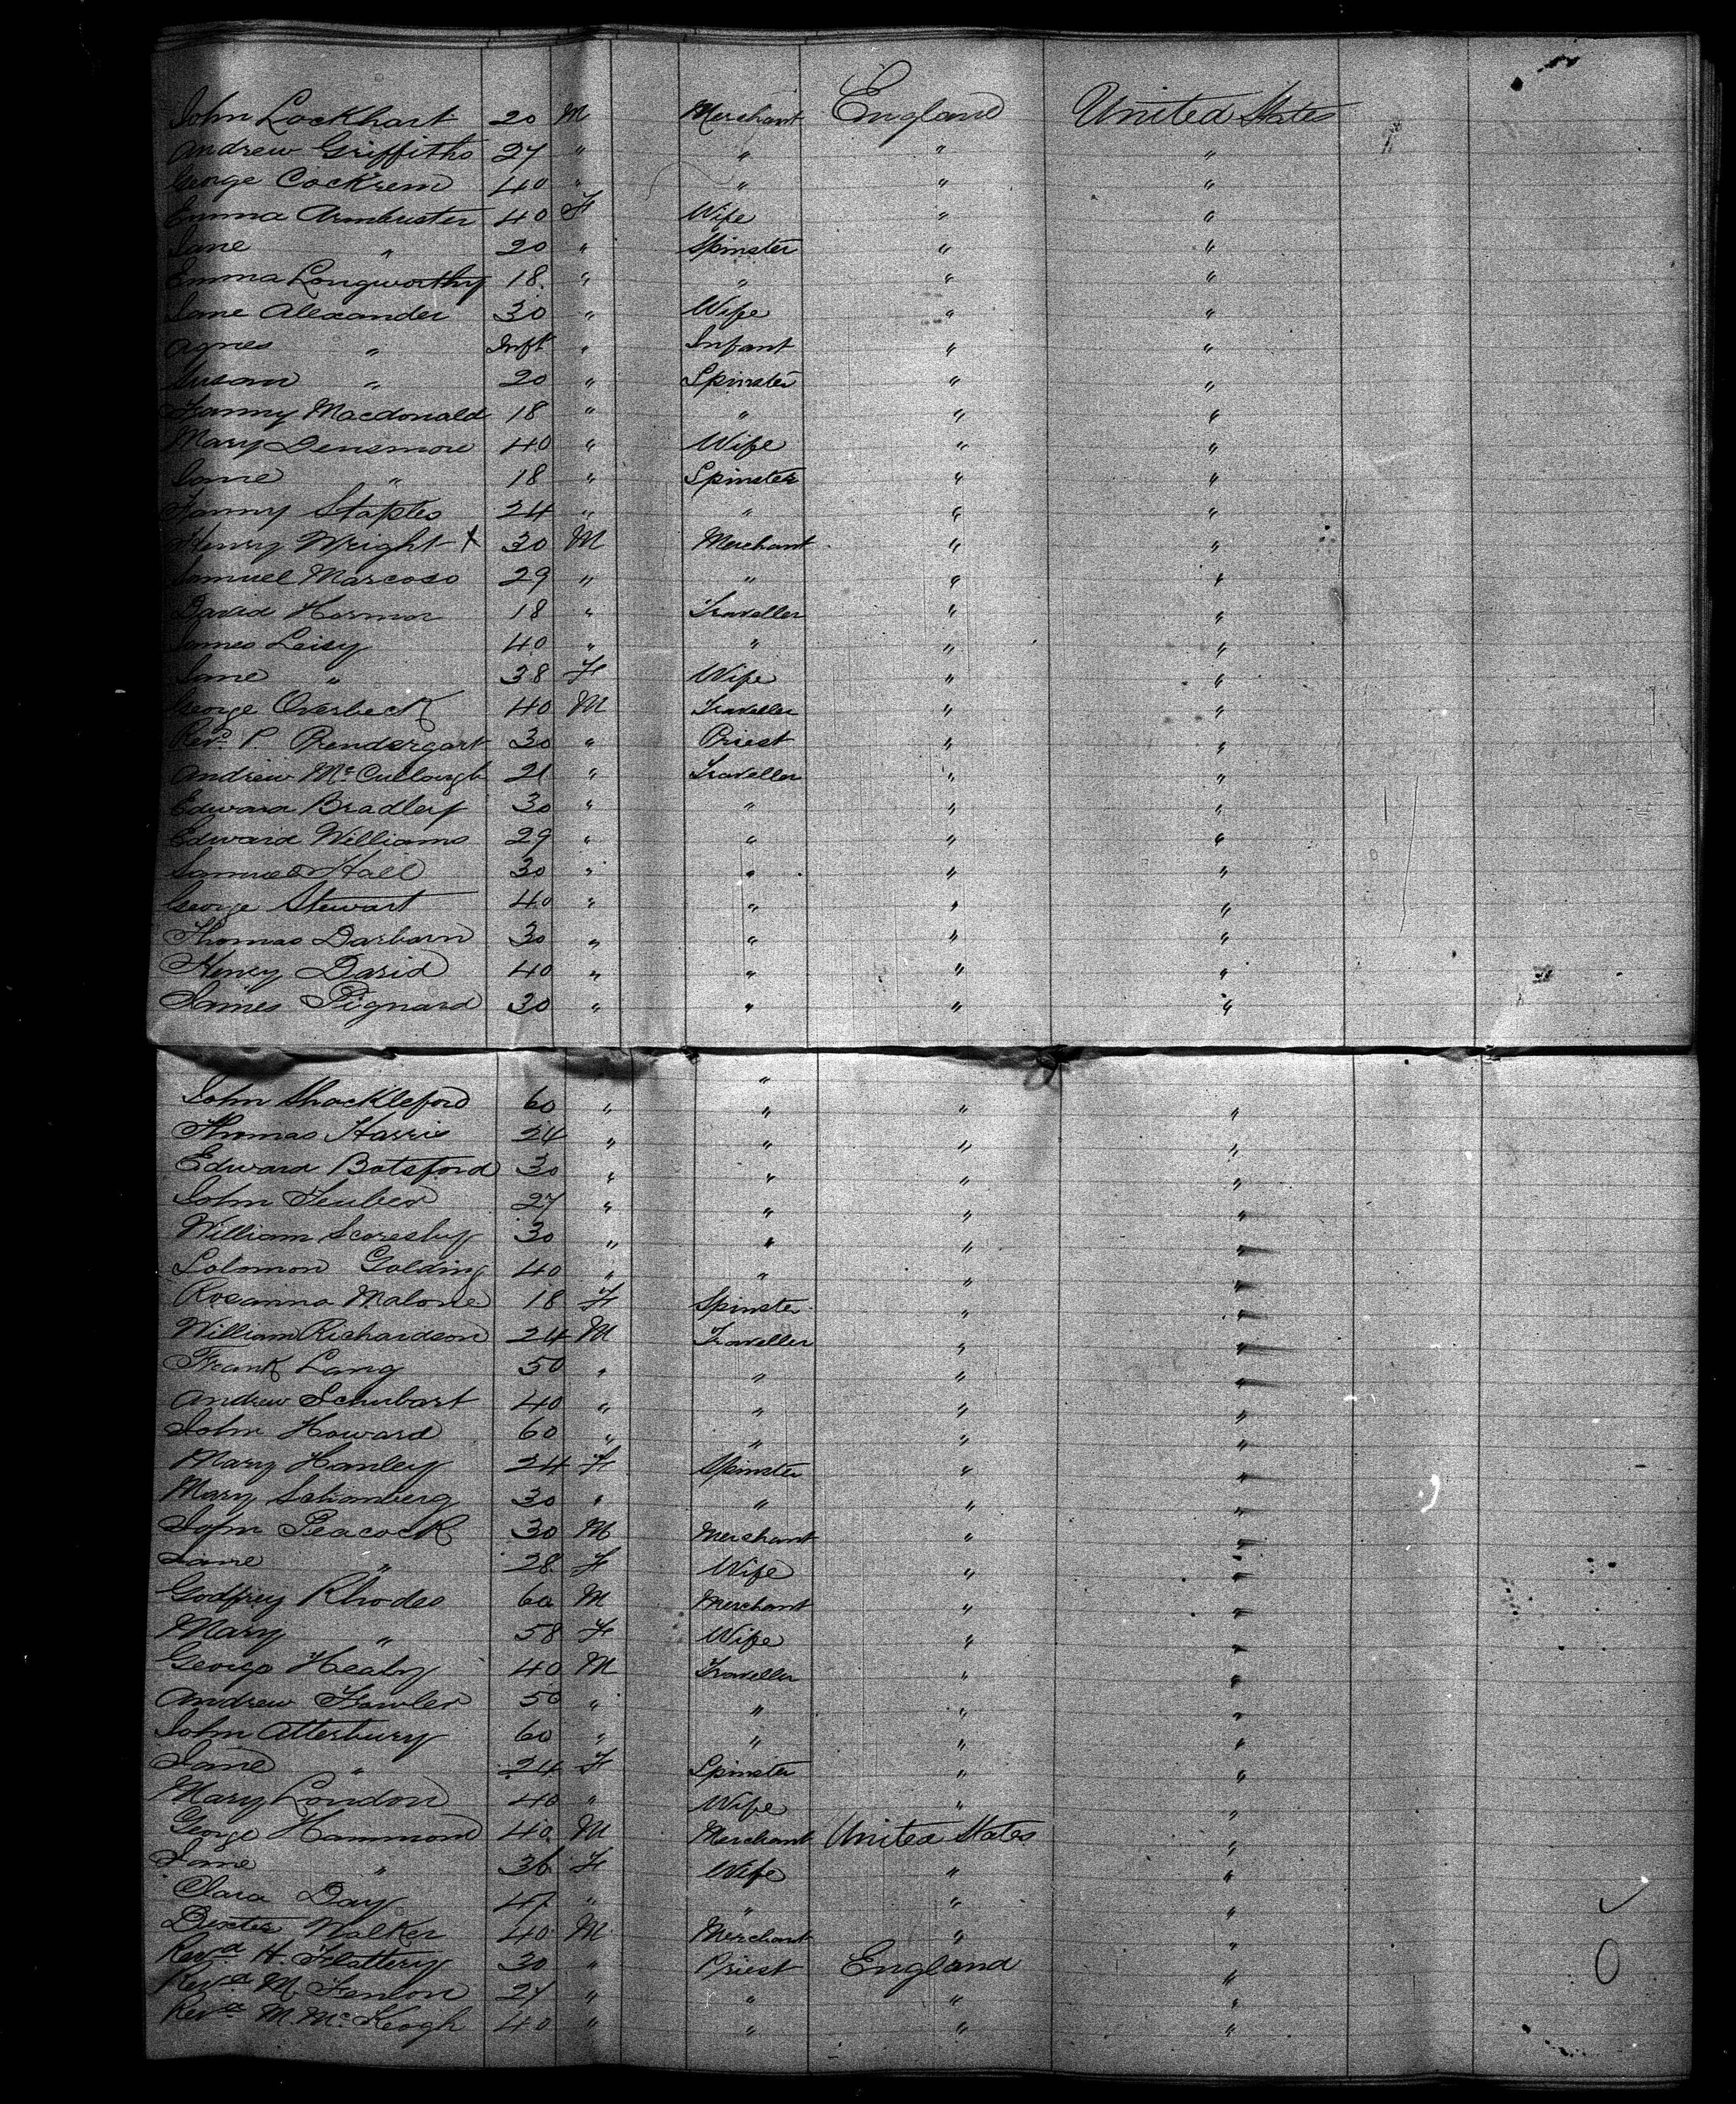 John Lockhart 20 M Merchant England United States
Andrew Griffiths 27 " " " "
George Cockrem 40 " " " "
Emma Armbuster 40 F Wife " "
Jane " 20 " Spinster " "
Emma Longworthy 18 " " " "
Jane Alexander 30 " Wife " "
Agnes " Inft " Infant " "
Susan " 20 " Spinster " "
Fanny Macdonald 18 " " " "
Mary Densmore 40 " Wife " "
Jane " 18 " Spinster " "
Fanny Staples 24 " " " "
Henry Wright X 30 M Merchant " "
Samuel Marcoso 29 " " " "
David Hormor 18 " Traveller " "
James Leisy 40 " " " "
Jane " 38 F Wife " "
George Overbeck 40 M Traveller " "
Revd P. Prendergart 30 " Priest " "
Andrew McCullough 21 " Traveller " "
Edward Bradley 30 " " " "
Edward Williams 29 " " " "
Samuel Hall 30 " " " "
George Stewart 40 " " " "
Thomas Darbarn 30 " " " "
Henry David 40 " " " "
James Pignard 30 " " " "
"
John Shackleford 60 " " " "
Thomas Harris 24 " " " "
Edward Botsford 30 " " " "
John Teuber 27 " " " "
William Scoresby 30 " " " "
Solomon Golding 40 " " " "
Rosanna Malone 18 F Spinster " "
William Richardson 24 M Traveller " "
Frank Lang 50 " " " "
Andrew Schubart 40 " " " "
John Howard 60 " " " "
Mary Hanley 24 F Spinster " "
Mary Schomberg 30 " " " "
John Peacock 30 M Merchant " "
Jane " 28 F Wife " "
Godfrey Rhodes 60 M Merchant " "
Mary " 58 F Wife " "
George Healy 40 M Traveller " "
Andrew Fowler 50 " " " "
John Atterbury 60 " " " "
Jane " 24 F Spinster " "
Mary London 40 " Wife " "
George Hammond 40 M Merchant United States "
Jane " 36 F Wife " "
Clara Day 47 " " " "
Dexter Walker 40 M Merchant " "
Revd H. Flattery 30 " Priest England "
Revd M. Fenlon 27 " " " "
Revd M. McKeogh 40 " " " "